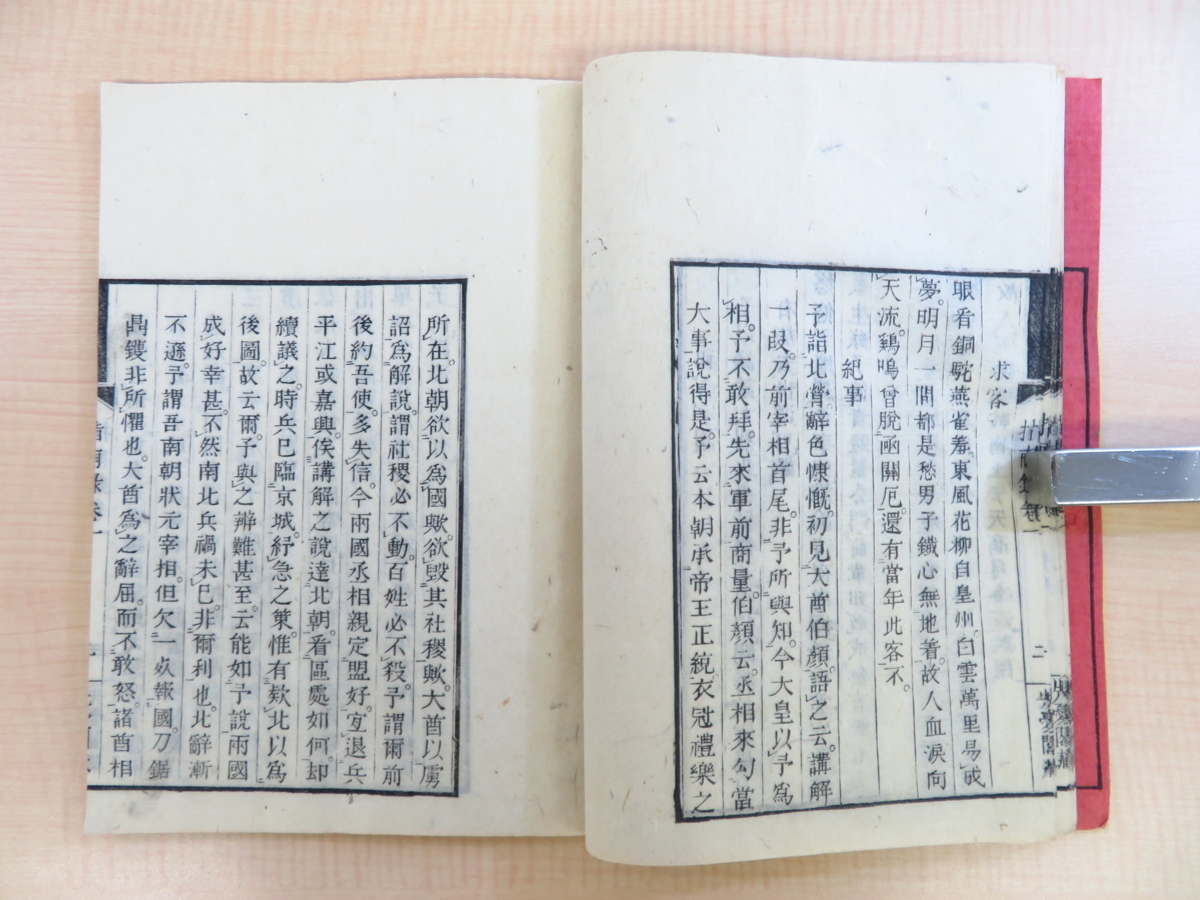 求客
眼看銅駝燕雀羞。東風花柳自皇州。白雲萬里易成
夢。明月一間都是愁。男子鐵心無地著。故人血淚向
天流。鷄鳴曾脫函關厄。還有當年此客不。
紀事
予詣北營。辭色慷慨。初見大酋伯顏。語之云。講解
一段。乃前宰相首尾。非予所與知。今大皇以予爲
相。予不敢拜。先來軍前商量。伯顏云。丞相來勾當
大事。說得是。予云本朝承帝王正統。衣冠禮樂之
所在。北朝欲以爲國歟。欲毀其社稷歟。大酋以虜
詔爲解說。謂社稷必不動。百姓必不殺。予謂爾前
後約吾使。多失信。今兩國丞相親定盟好。宜退兵
平江或嘉興。俟講解之說達北朝。看區處如何。却
續議之。時兵已臨京城。紓急之策。惟有欵北以爲
後圖。故云爾。予與之辨難甚至。云能如予說。兩國
成好幸甚。不然南北兵禍未已。非爾利也。北辭漸
不遜。予謂吾南朝狀元宰相。但欠一死報國。刀鋸
鼎鑊非所懼也。大酋爲之辭屈。而不敢怒。諸酋相
指南錄卷一
二